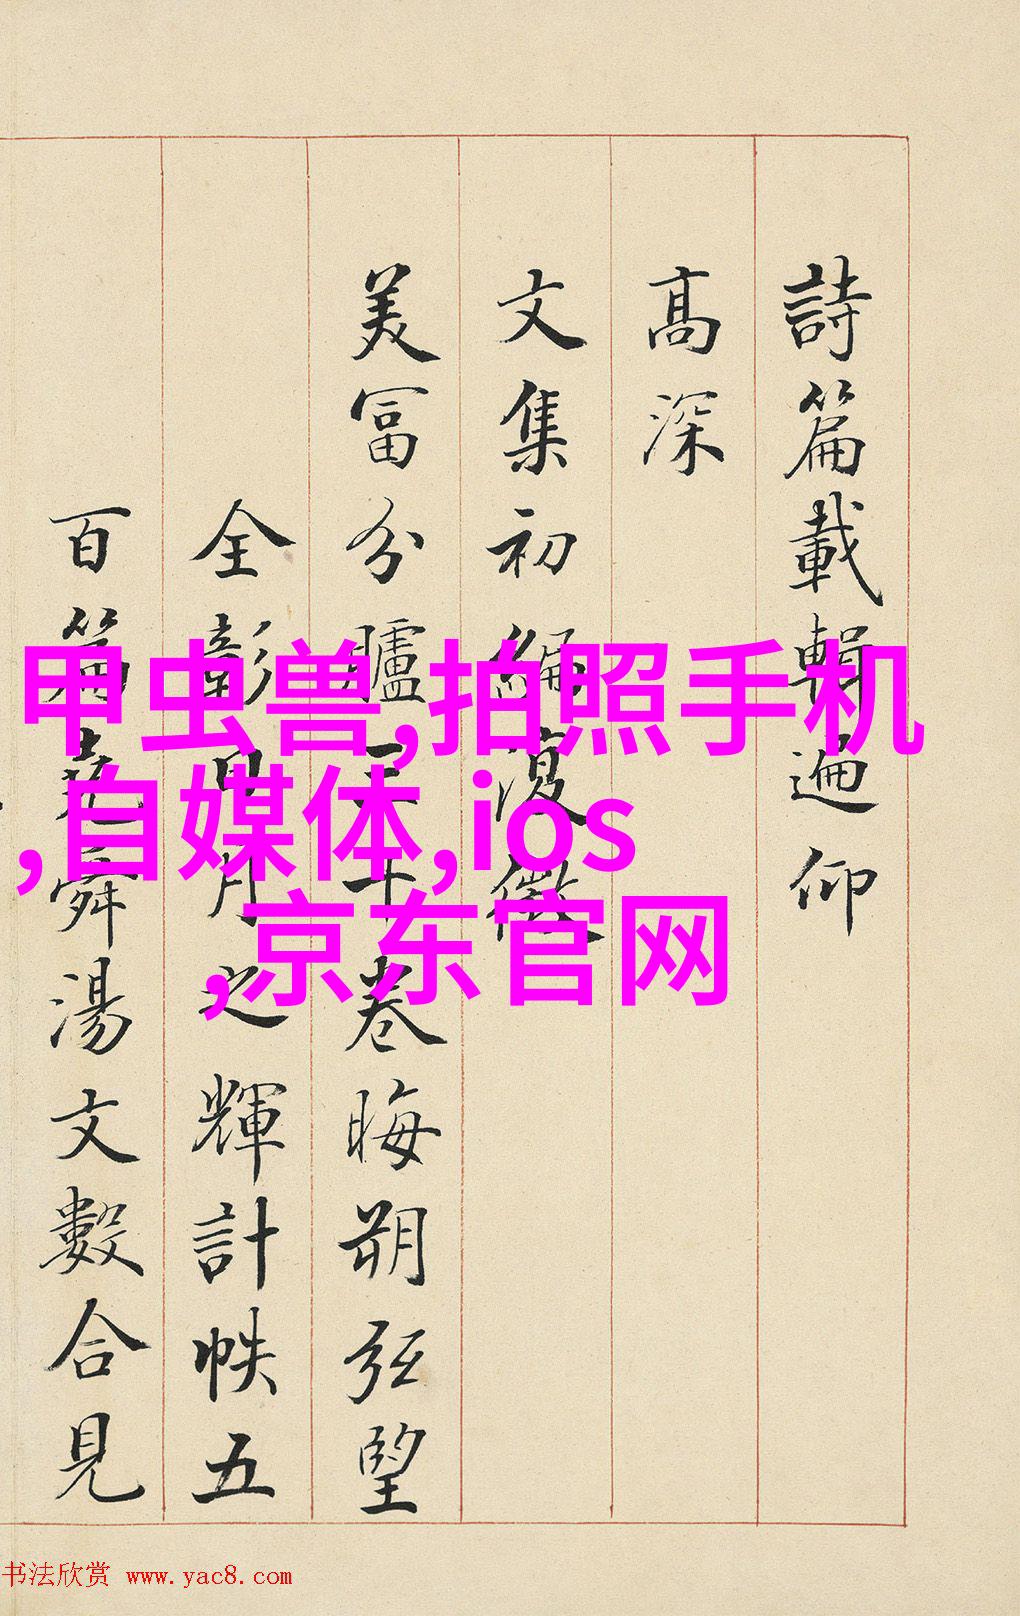 詩篇載輯遍仰
高深
文集初編復徵
美富分臚三十卷晦朔弦望
全彰日月之輝計帙五
百篇堯舜湯文數合見
甲虫兽,拍照手机
,自媒体,ios
,京东官网
书法欣赏 www.yac8.com